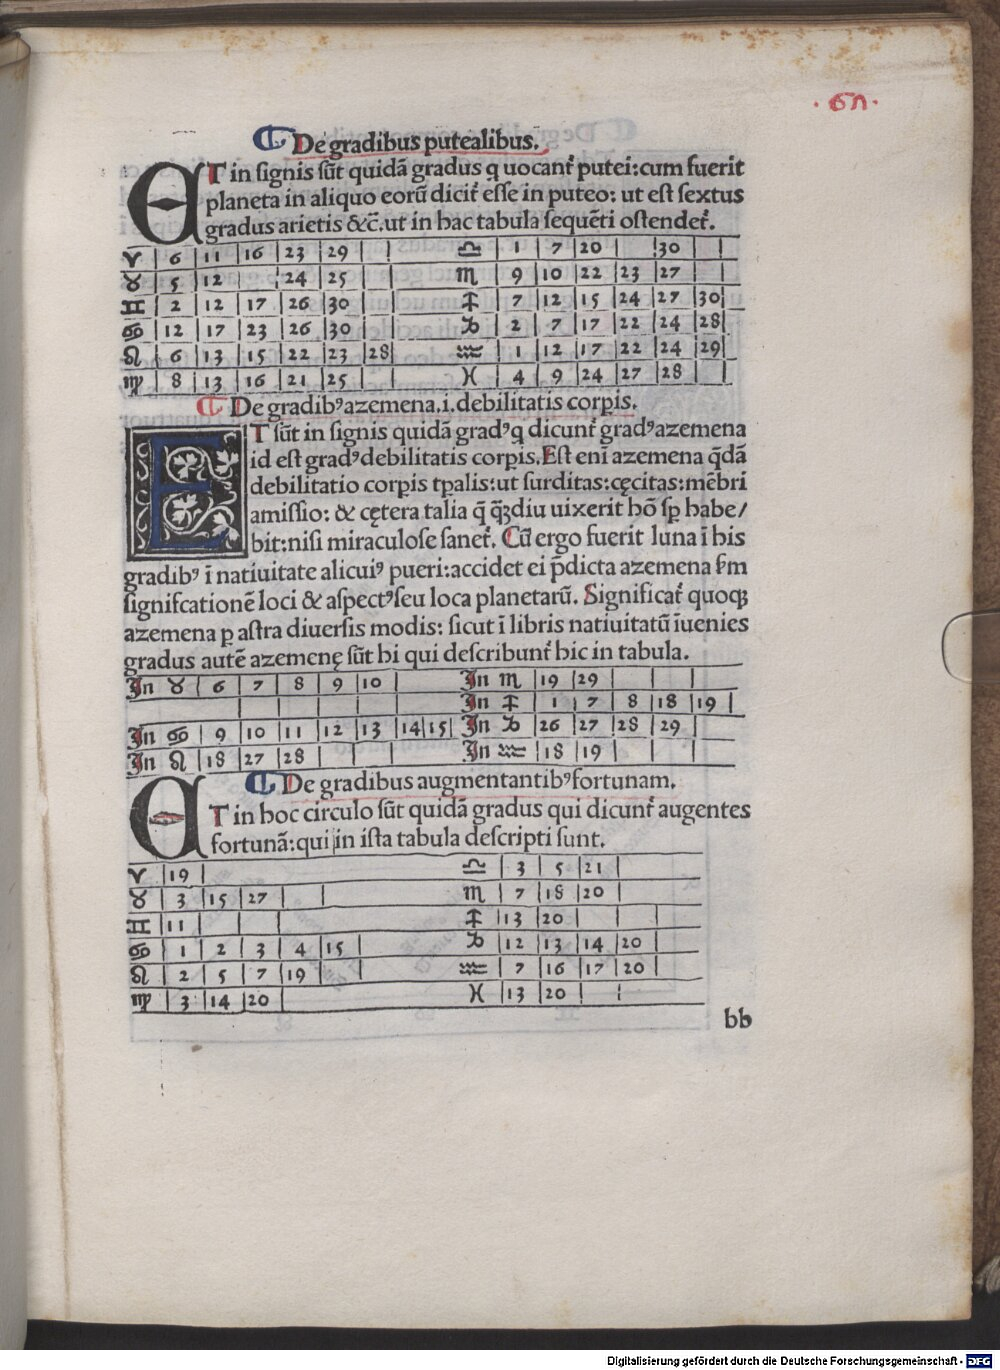 ·67·
De gradibus putealibus.
ET in signis sūt quidā gradus q uocant᷑ putei:cum fuerit
planeta in aliquo eorū dicit᷑ esse in puteo: ut est sextus
gradus arietis &c̄.ut in hac tabula sequēti ostendet᷑.
♈ 6 11 16 23 29 ♎ 1 7 20 30
♉ 5 12 24 25 ♏ 9 10 22 23 27
♊ 2 12 17 26 30 ♐ 7 12 15 24 27 30
♋ 12 17 23 26 30 ♑ 2 7 17 22 24 28
♌ 6 13 15 22 23 28 ♒ 1 12 17 22 24 29
♍ 8 13 16 21 25 ♓ 4 9 24 27 28
De gradibꝰ azemena.i.debilitatis corpis.
ET sūt in signis quidā gradꝰ q dicunt᷑ gradꝰ azemena
id est gradꝰ debilitatis corpis.Est enī azemena q̄dā
debilitatio corpis tpalis:ut surditas:cęcitas:mēbri
amissio: & cętera talia q̄ q̄ꝫdiu uixerit hō sp̄ habe/
bit:nisi miraculose sanet᷑. Cū ergo fuerit luna ī his
gradibꝰ ī natiuitate alicuiꝰ pueri:accidet ei p̄dicta azemena ẜm
signifcationē loci & aspectꝰ seu loca planetarū. Significat᷑ quoqꝫ
azemena p astra diuersis modis: sicut ī libris natiuitatū īuenies
gradus autē azemenę sūt hi qui describunt᷑ hic in tabula.
In ♉ 6 7 8 9 10 In ♏ 19 29
In ♐ 1 7 8 18 19
In ♋ 9 10 11 12 13 14 15 In ♑ 26 27 28 29
In ♌ 18 27 28 In ♒ 18 19
De gradibus augmentantibꝰ fortunam.
ET in hoc circulo sūt quidā gradus qui dicunt᷑ augentes
fortunā:qui in ista tabula descripti sunt.
♈ 19 ♎ 3 5 21
♉ 3 15 27 ♏ 7 18 20
♊ 11 ♐ 13 20
♋ 1 2 3 4 15 ♑ 12 13 14 20
♌ 2 5 7 19 ♒ 7 16 17 20
♍ 3 14 20 ♓ 13 20
bb
Digitalisierung gefördert durch die Deutsche Forschungsgemeinschaft - DFG